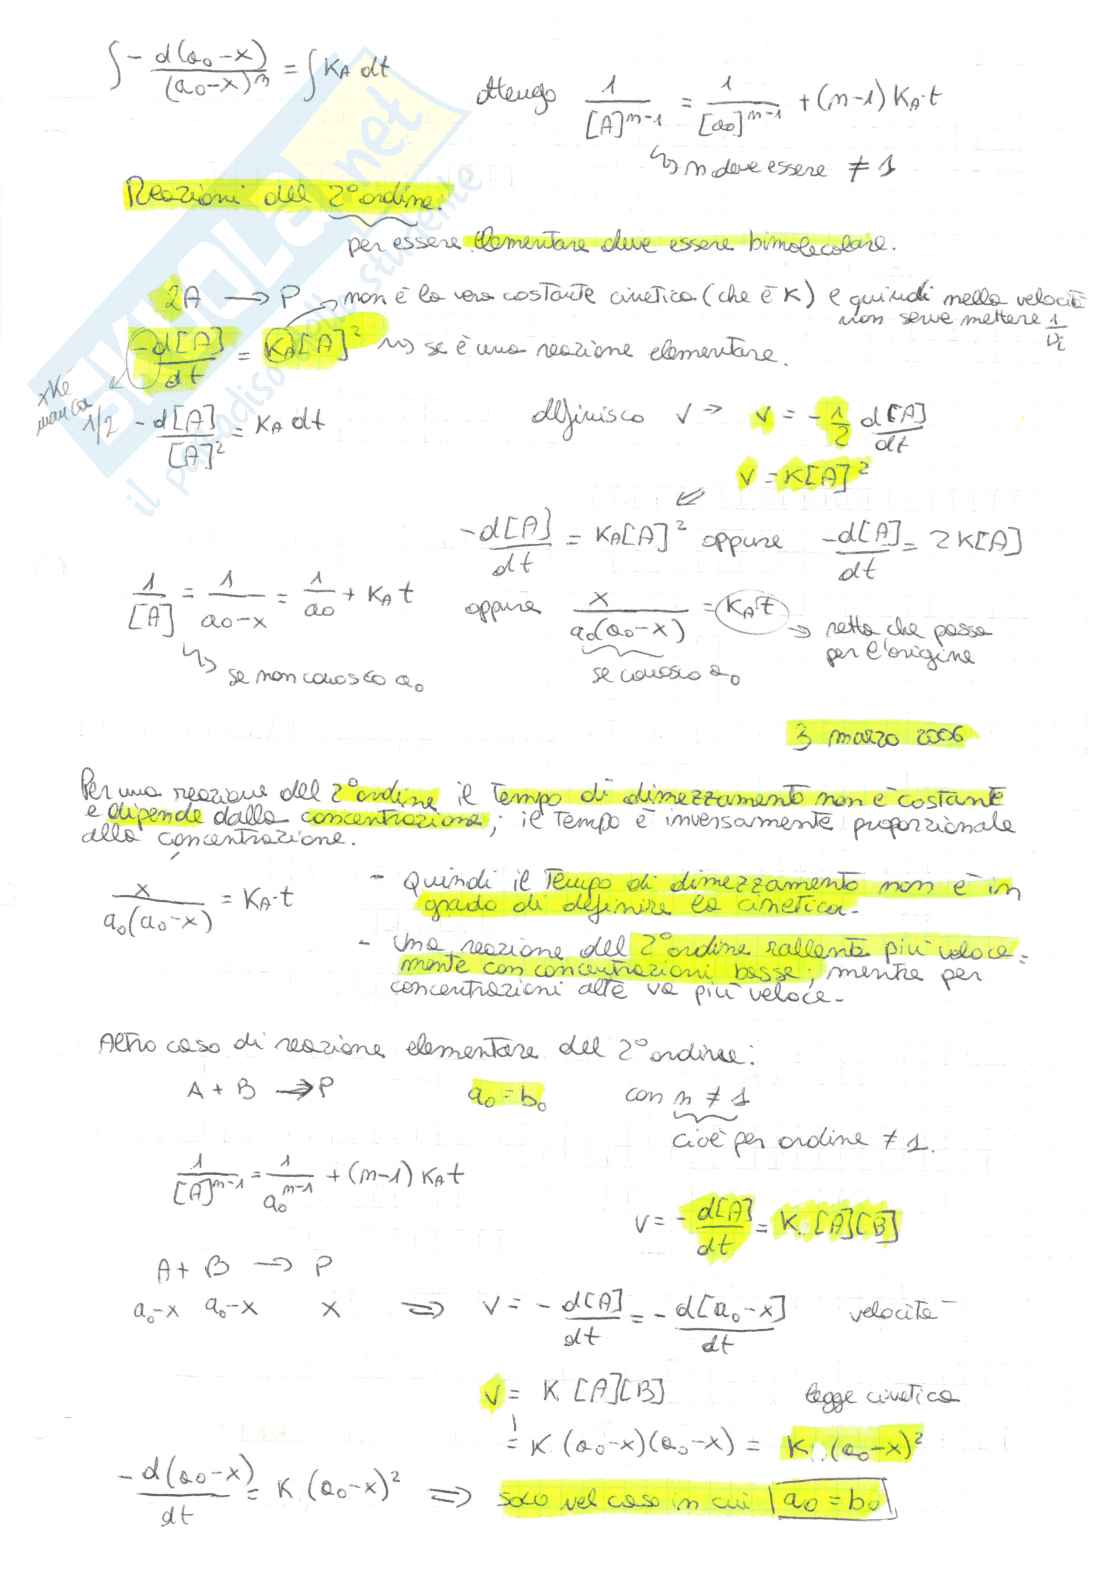 ∫ - d(a₀-x)/(a₀-x)ⁿ = ∫ K_A dt
ottengo 1/[A]ⁿ⁻¹ = 1/[a₀]ⁿ⁻¹ + (n-1) K_A·t
↳ n deve essere ≠ 1
Reazioni del 2° ordine:
per essere elementare deve essere bimolecolare.
2A → P → non è la vera costante cinetica (che è K) e quindi nella velocità
non serve mettere 1/νi
-d[A]/dt = K_A[A]² ⇝ se è una reazione elementare.
xKé
manca
1/2
-d[A]/[A]² = K_A dt
definisco v → v = -1/2 d[A]/dt
v = K[A]²
-d[A]/dt = K_A[A]² oppure -d[A]/dt = 2K[A]
1/[A] = 1/a₀-x = 1/a₀ + K_A t oppure x/a₀(a₀-x) = K_A·t → retta che passa
per l'origine
↳ se non conosco a₀
se conosco a₀
3 marzo 2006
Per una reazione del 2° ordine il tempo di dimezzamento non è costante
e dipende dalla concentrazione; il tempo è inversamente proporzionale
alla concentrazione.
x/a₀(a₀-x) = K_A·t
- Quindi il tempo di dimezzamento non è in
grado di definire la cinetica.
- Una reazione del 2° ordine rallenta più veloce=
mente con concentrazioni basse; mentre per
concentrazioni alte va più veloce.
Altro caso di reazione elementare del 2° ordine:
A + B → P a₀ = b₀ con n ≠ 1
cioè per ordine ≠ 1.
1/[A]ⁿ⁻¹ = 1/a₀ⁿ⁻¹ + (n-1) K_A t
v = -d[A]/dt = K·[A][B]
A + B → P
a₀-x a₀-x x ⇒ v = -d[A]/dt = -d[a₀-x]/dt velocità
v = K [A][B] legge cinetica
= K·(a₀-x)(a₀-x) = K·(a₀-x)²
-d(a₀-x)/dt = K·(a₀-x)² ⇒ solo nel caso in cui a₀ = b₀
SKUOLA.net
il paradiso dello studente